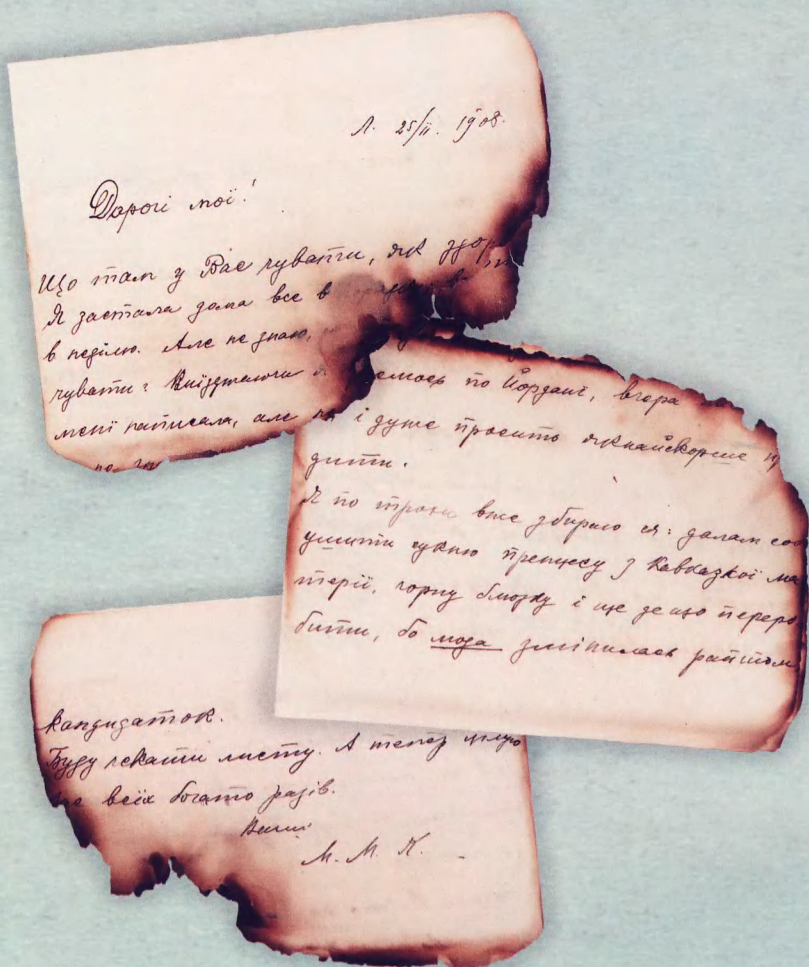 Л. 25/ІІ. 1908.
Дорогі мої!
Що там у Вас чувати, як здор
Я застала дома все в
в неділю. Але не знаю,
чувати? Виїзджаючи
мені написала, але
ємось по Йордані, вчора
і дуже просить якнайскорше
дити.
Я по трохи вже збираю ся: далам
ушити сукню принцесу з Кавказкої ма
терії, чорну блюзку і ще дещо переро
бити, бо мода змінилась раптом
кандидаток.
Буду чекати листу. А тепер цілую
всіх богато разів.
Ваші
М. М. К.